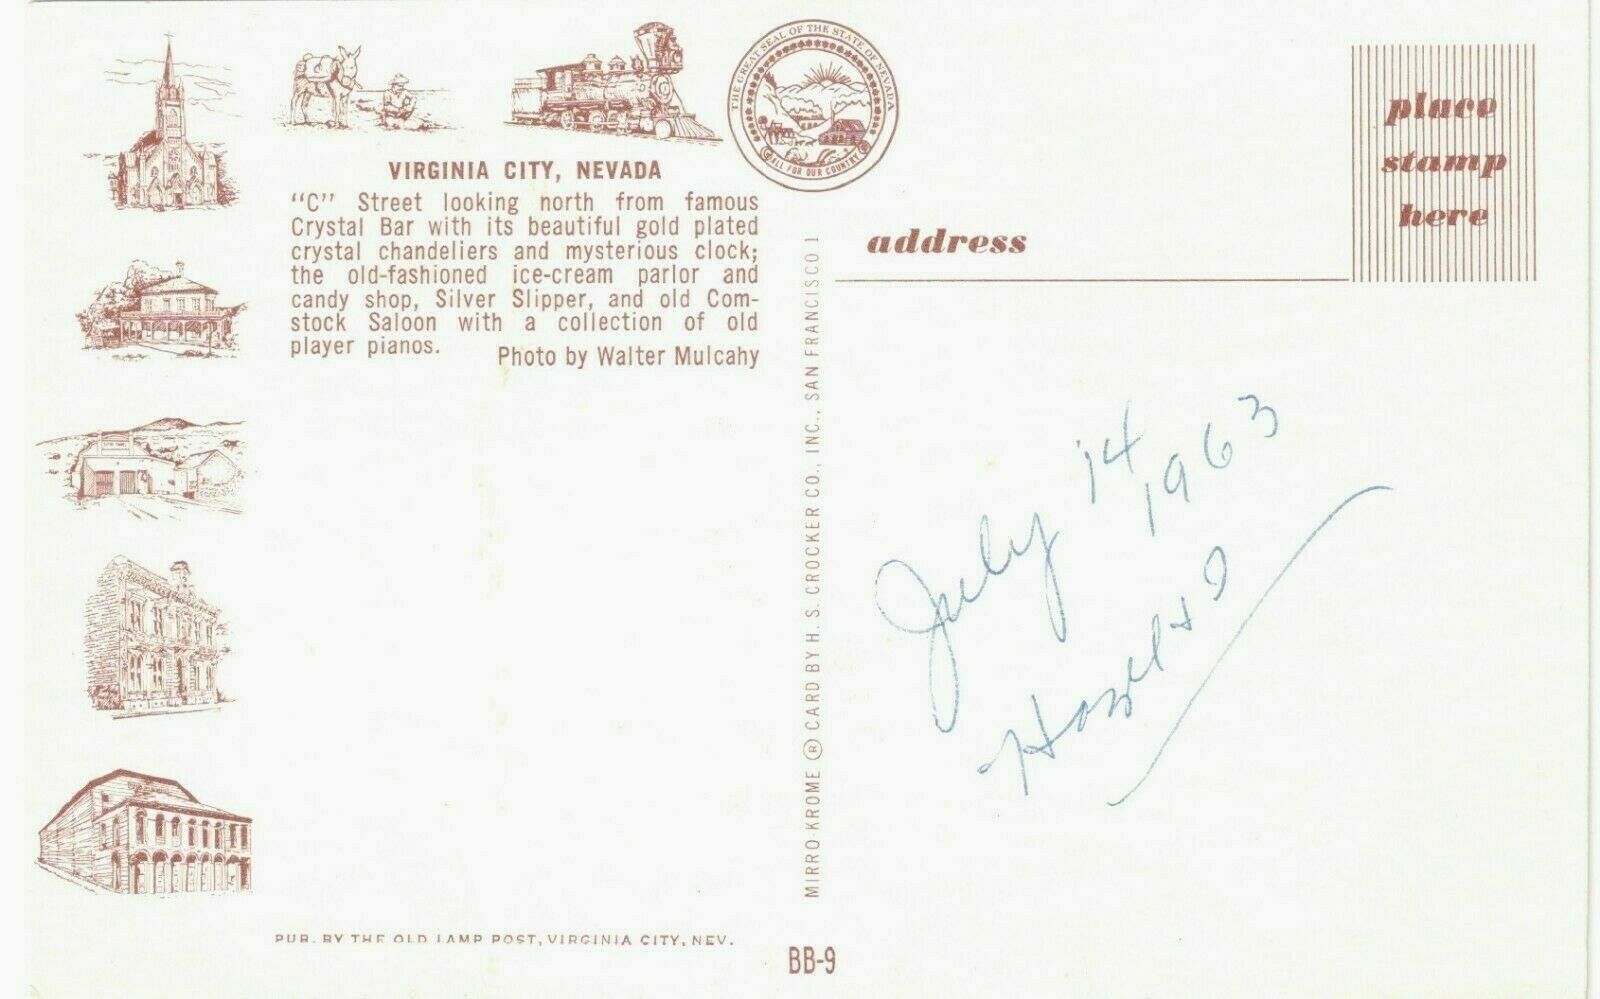 THE GREAT SEAL OF THE STATE OF NEVADA
ALL FOR OUR COUNTRY
VIRGINIA CITY, NEVADA
"C" Street looking north from famous
Crystal Bar with its beautiful gold plated
crystal chandeliers and mysterious clock;
the old-fashioned ice-cream parlor and
candy shop, Silver Slipper, and old Com-
stock Saloon with a collection of old
player pianos.
Photo by Walter Mulcahy
PUB. BY THE OLD LAMP POST, VIRGINIA CITY, NEV.
MIRRO-KROME ® CARD BY H. S. CROCKER CO., INC., SAN FRANCISCO 1
BB-9
place
stamp
here
address
July 14
1963
Hazel &